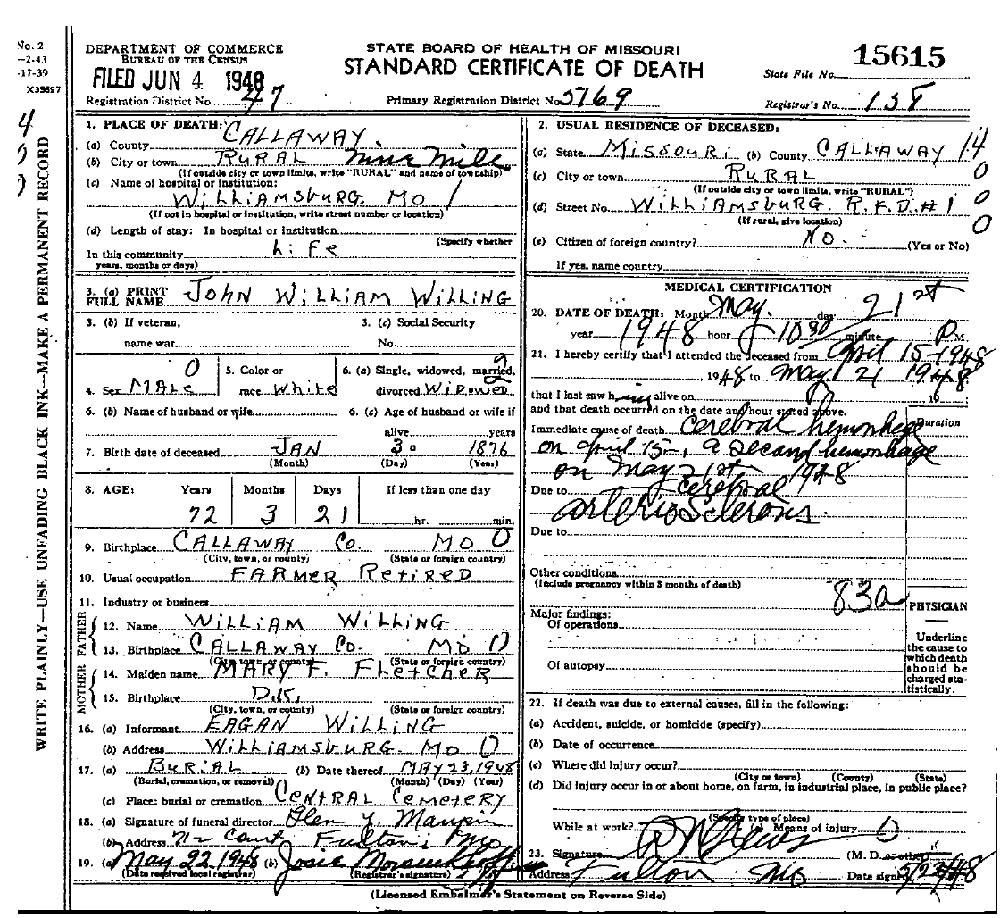 No. 2
-2-43
-17-39
X35697
WRITE PLAINLY—USE UNFADING BLACK INK—MAKE A PERMANENT RECORD
DEPARTMENT OF COMMERCE
BUREAU OF THE CENSUS
FILED JUN 4 1948
Registration District No. 47
STATE BOARD OF HEALTH OF MISSOURI
STANDARD CERTIFICATE OF DEATH
Primary Registration District No. 5769
15615
State File No.
Registrar's No. 138
1. PLACE OF DEATH:
(a) County CALLAWAY
(b) City or town RURAL Nine Mile
(If outside city or town limits, write "RURAL" and name of township)
(c) Name of hospital or institution:
WILLIAMSBURG MO 1
(If not in hospital or institution, write street number or location)
(d) Length of stay: In hospital or institution
(Specify whether
In this community Life
years, months or days)
3. (a) PRINT FULL NAME JOHN WILLIAM WILLING
3. (b) If veteran, name war
3. (c) Social Security No.
4. Sex MALE 0
5. Color or race White
6. (a) Single, widowed, married, divorced Widowed 2
6. (b) Name of husband or wife
6. (c) Age of husband or wife if alive years
7. Birth date of deceased JAN 30 1876
(Month) (Day) (Year)
8. AGE: Years Months Days If less than one day
72 3 21 hr. min.
9. Birthplace CALLAWAY Co. MO 0
(City, town, or county) (State or foreign country)
10. Usual occupation FARMER RETIRED
11. Industry or business
FATHER
12. Name WILLIAM WILLING
13. Birthplace CALLAWAY Co. Mo 0
(City, town, or county) (State or foreign country)
MOTHER
14. Maiden name MARY F. FLETCHER
15. Birthplace D.K.
(City, town, or county) (State or foreign country)
16. (a) Informant EAGAN WILLING
(b) Address WILLIAMSBURG MO 0
17. (a) BURIAL (b) Date thereof MAY 23, 1948
(Burial, cremation, or removal) (Month) (Day) (Year)
(c) Place: burial or cremation CENTRAL CEMETERY
18. (a) Signature of funeral director Glen Y Maupin
(b) Address Fulton, Mo
19. (a) May 22 1948 (b) Josie
(Date received local registrar) (Registrar's signature)
2. USUAL RESIDENCE OF DECEASED:
(a) State MISSOURI (b) County CALLAWAY 14
(c) City or town RURAL 0
(If outside city or town limits, write "RURAL")
(d) Street No. WILLIAMSBURG. R.F.D. #1 0
(If rural, give location)
0
(e) Citizen of foreign country? No. (Yes or No)
If yes, name country
MEDICAL CERTIFICATION
20. DATE OF DEATH: Month May day 21st
year 1948 hour 10 30 minute P M.
21. I hereby certify that I attended the deceased from April 15-1948
1948 to May 21 1948
that I last saw him alive on 19
and that death occurred on the date and hour stated above.
Duration
Immediate cause of death Cerebral hemorrhage
on April 15-, a second hemorrhage
on May 21st 1948
Due to cerebral
arterio Sclerosis
Due to
Other conditions
(Include pregnancy within 3 months of death)
83a
Major findings:
Of operations
Of autopsy
PHYSICIAN
Underline the cause to which death should be charged statistically.
22. If death was due to external causes, fill in the following:
(a) Accident, suicide, or homicide (specify)
(b) Date of occurrence
(c) Where did injury occur?
(City or town) (County) (State)
(d) Did injury occur in or about home, on farm, in industrial place, in public place?
(Specify type of place)
While at work? Means of injury 0
23. Signature (M. D. or other)
Address Fulton Mo Date signed
(Licensed Embalmer's Statement on Reverse Side)